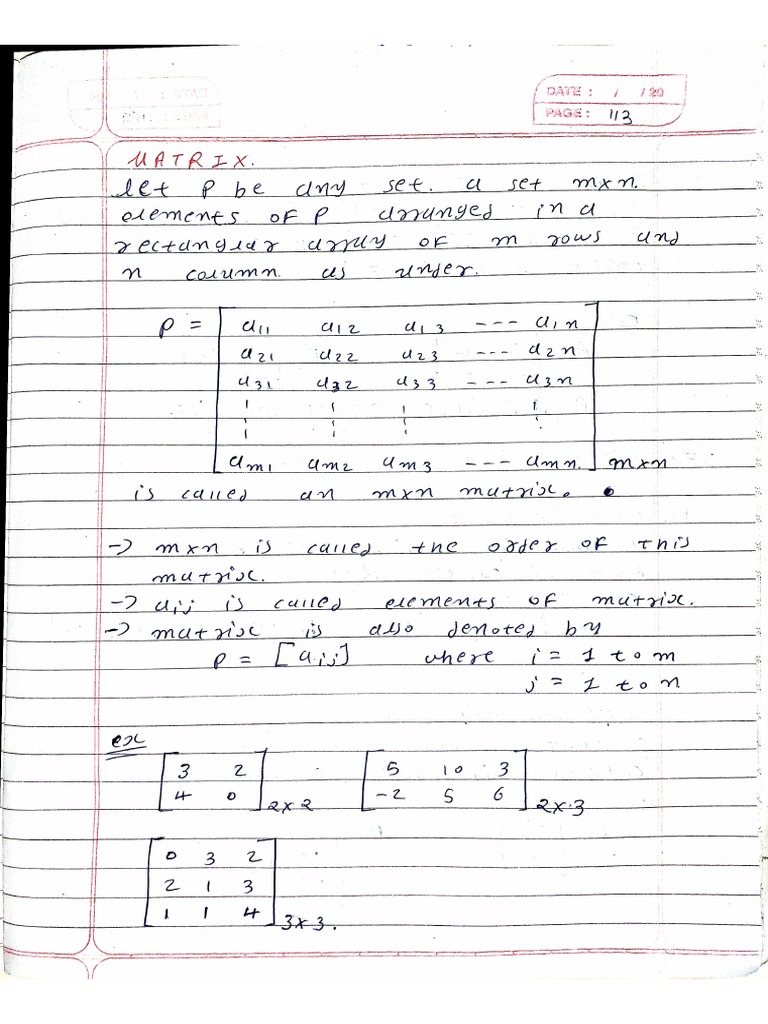 DATE: / / 20
PAGE: 113
MATRIX.
let P be any set. a set mxn.
elements of P arranged in a
rectangular array of m rows and
n column as under.
P = [ a11 a12 a13 --- a1n
a21 a22 a23 --- a2n
a31 a32 a33 --- a3n
¦ ¦ ¦ ¦
am1 am2 am3 --- amn. ] mxn
is called an mxn matrix.
→ mxn is called the order of this
matrix.
→ aij is called elements of matrix.
→ matrix is also denoted by
P = [aij] where i = 1 to m
j = 1 to n
ex
[ 3 2 [ 5 10 3
4 0 ] 2x2 -2 5 6 ] 2x3
[ 0 3 2
2 1 3
1 1 4 ] 3x3.